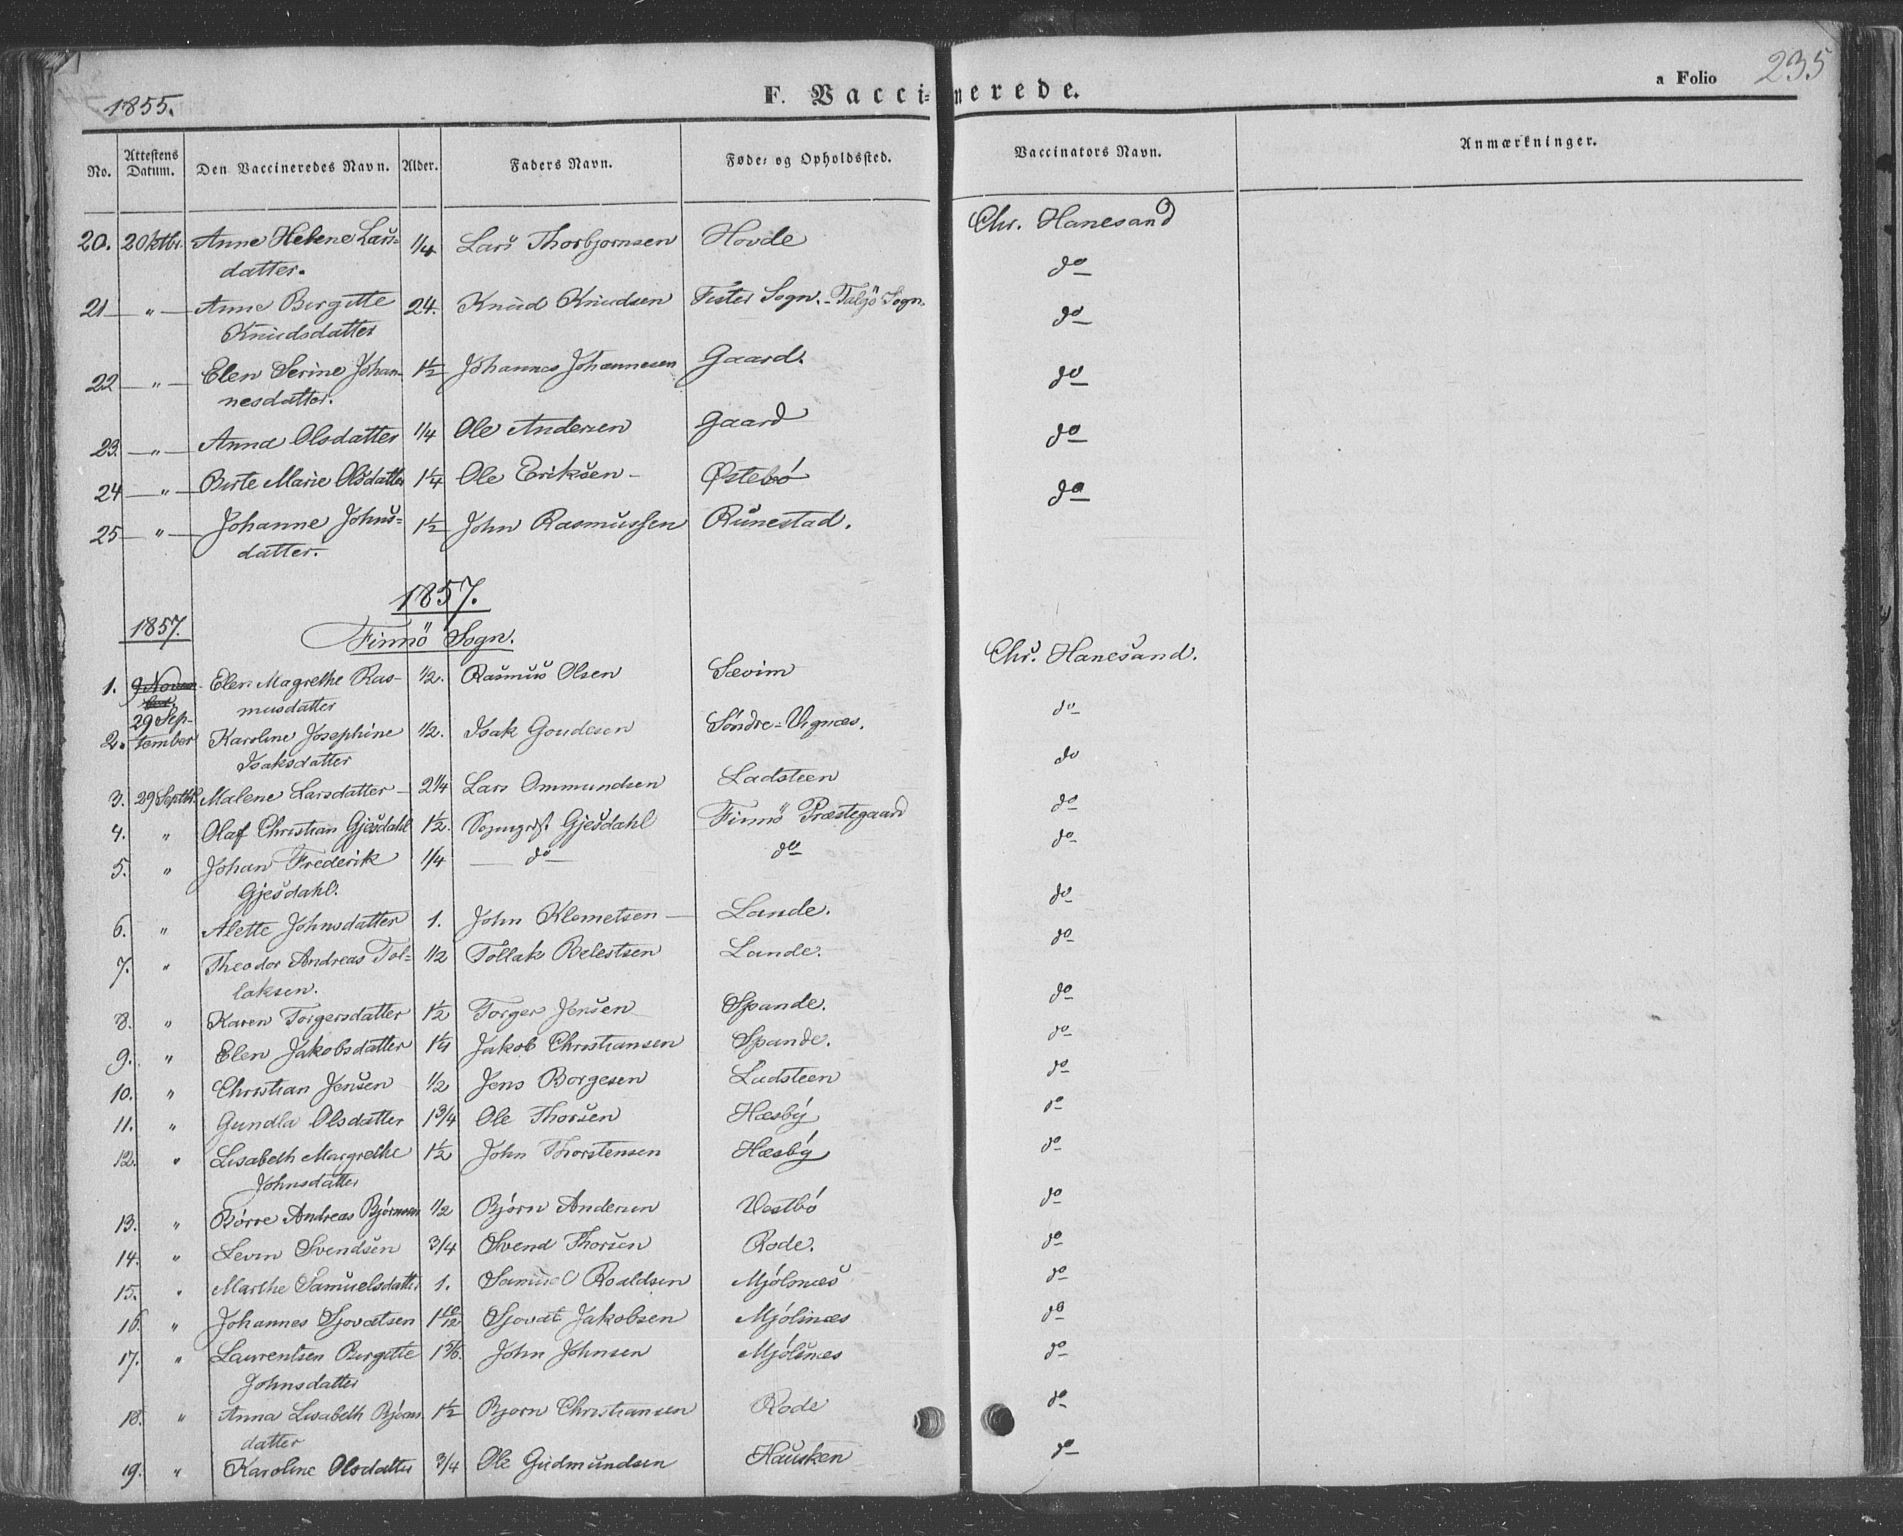 1855.
F. Vaccinerede.
a Folio 235
No. Attestens Datum. Den Vaccineredes Navn. Alder. Faders Navn. Føde- og Opholdssted. Vaccinators Navn. Anmærkninger.
20. 20 Anne Helene Lars- 1/4 Lars Thorbjornsen Hovde Chr. Hanesand
datter. do
21 — " — Anne Birgitte 24. Knud Knudsen Fister Sogn. - Talgö Sogn. do
Knudsdatter
22 — " — Elen Serine Johan- 1 1/2 Johannes Johannesen Gaard. do
nesdatter.
23. — " — Anna Olsdatter 1/4 Ole Andersen Gaard do
24 — " — Birte Marie Olsdatter 1 1/4 Ole Eriksen - Østebö do
25 — " — Johanne Johns- 1 1/2 John Rasmussen Runestad.
datter.
1857.
1857. Finnö Sogn.
1. Elen Magrethe Ras- 1/2. Rasmus Olsen Sævim Chr. Hanesand.
musdatter
29 Sep-
2. tember Karoline Josephine 1/2. Isak Goudesen Söndre-Vignæs. do
Isaksdatter
3. 29 Septbr Malene Larsdatter — 2 1/4 Lars Ommundsen Ladsteen do
4. " Olaf Christian Gjesdahl 1 1/2. Sognepræst Gjesdahl Finnö Præstegaard do
5. " Johan Frederik 1/4 — do — do do
Gjesdahl.
6. " Alette Johnsdatter 1. John Klemetsen — Lande. do
7. " Theodor Andreas Tol- 1/2 Tollak Belestsen Lande. do
laksen.
8. " Karen Torgersdatter 1 1/2 Torger Jensen Spande. do
9. " Elen Jakobsdatter 1 1/4 Jakob Christiansen Spande. do
10. " Christian Jensen 1/2 Jens Borgesen Ladsteen do
11. " Gundla Olsdatter 1 3/4 Ole Thorsen Hæsbÿ do
12. " Lisabeth Margrethe 1 1/2 John Thorstensen Hæsbÿ do
Johnsdatter
13. " Börre Andreas Björnsen 1/2 Björn Andersen Vestbö do
14. " Levin Svendsen 3/4 Svend Thorsen Rode. do
15. " Marthe Samuelsdatter 1. Samuel Roaldsen Mjölsnæs do
16. " Johannes Sjovatsen 1 10/12 Sjovat Jakobsen Mjölsnæs do
17. " Laurentsen Birgitte 1 5/6. John Johnsen Mjölsnæs do
Johnsdatter
18. " Anna Lisabeth Björns 1 1/2 Bjorn Christiansen Rode do
datter
19. " Karoline Olsdatter 3/4 Ole Gudmundsen Hausken do